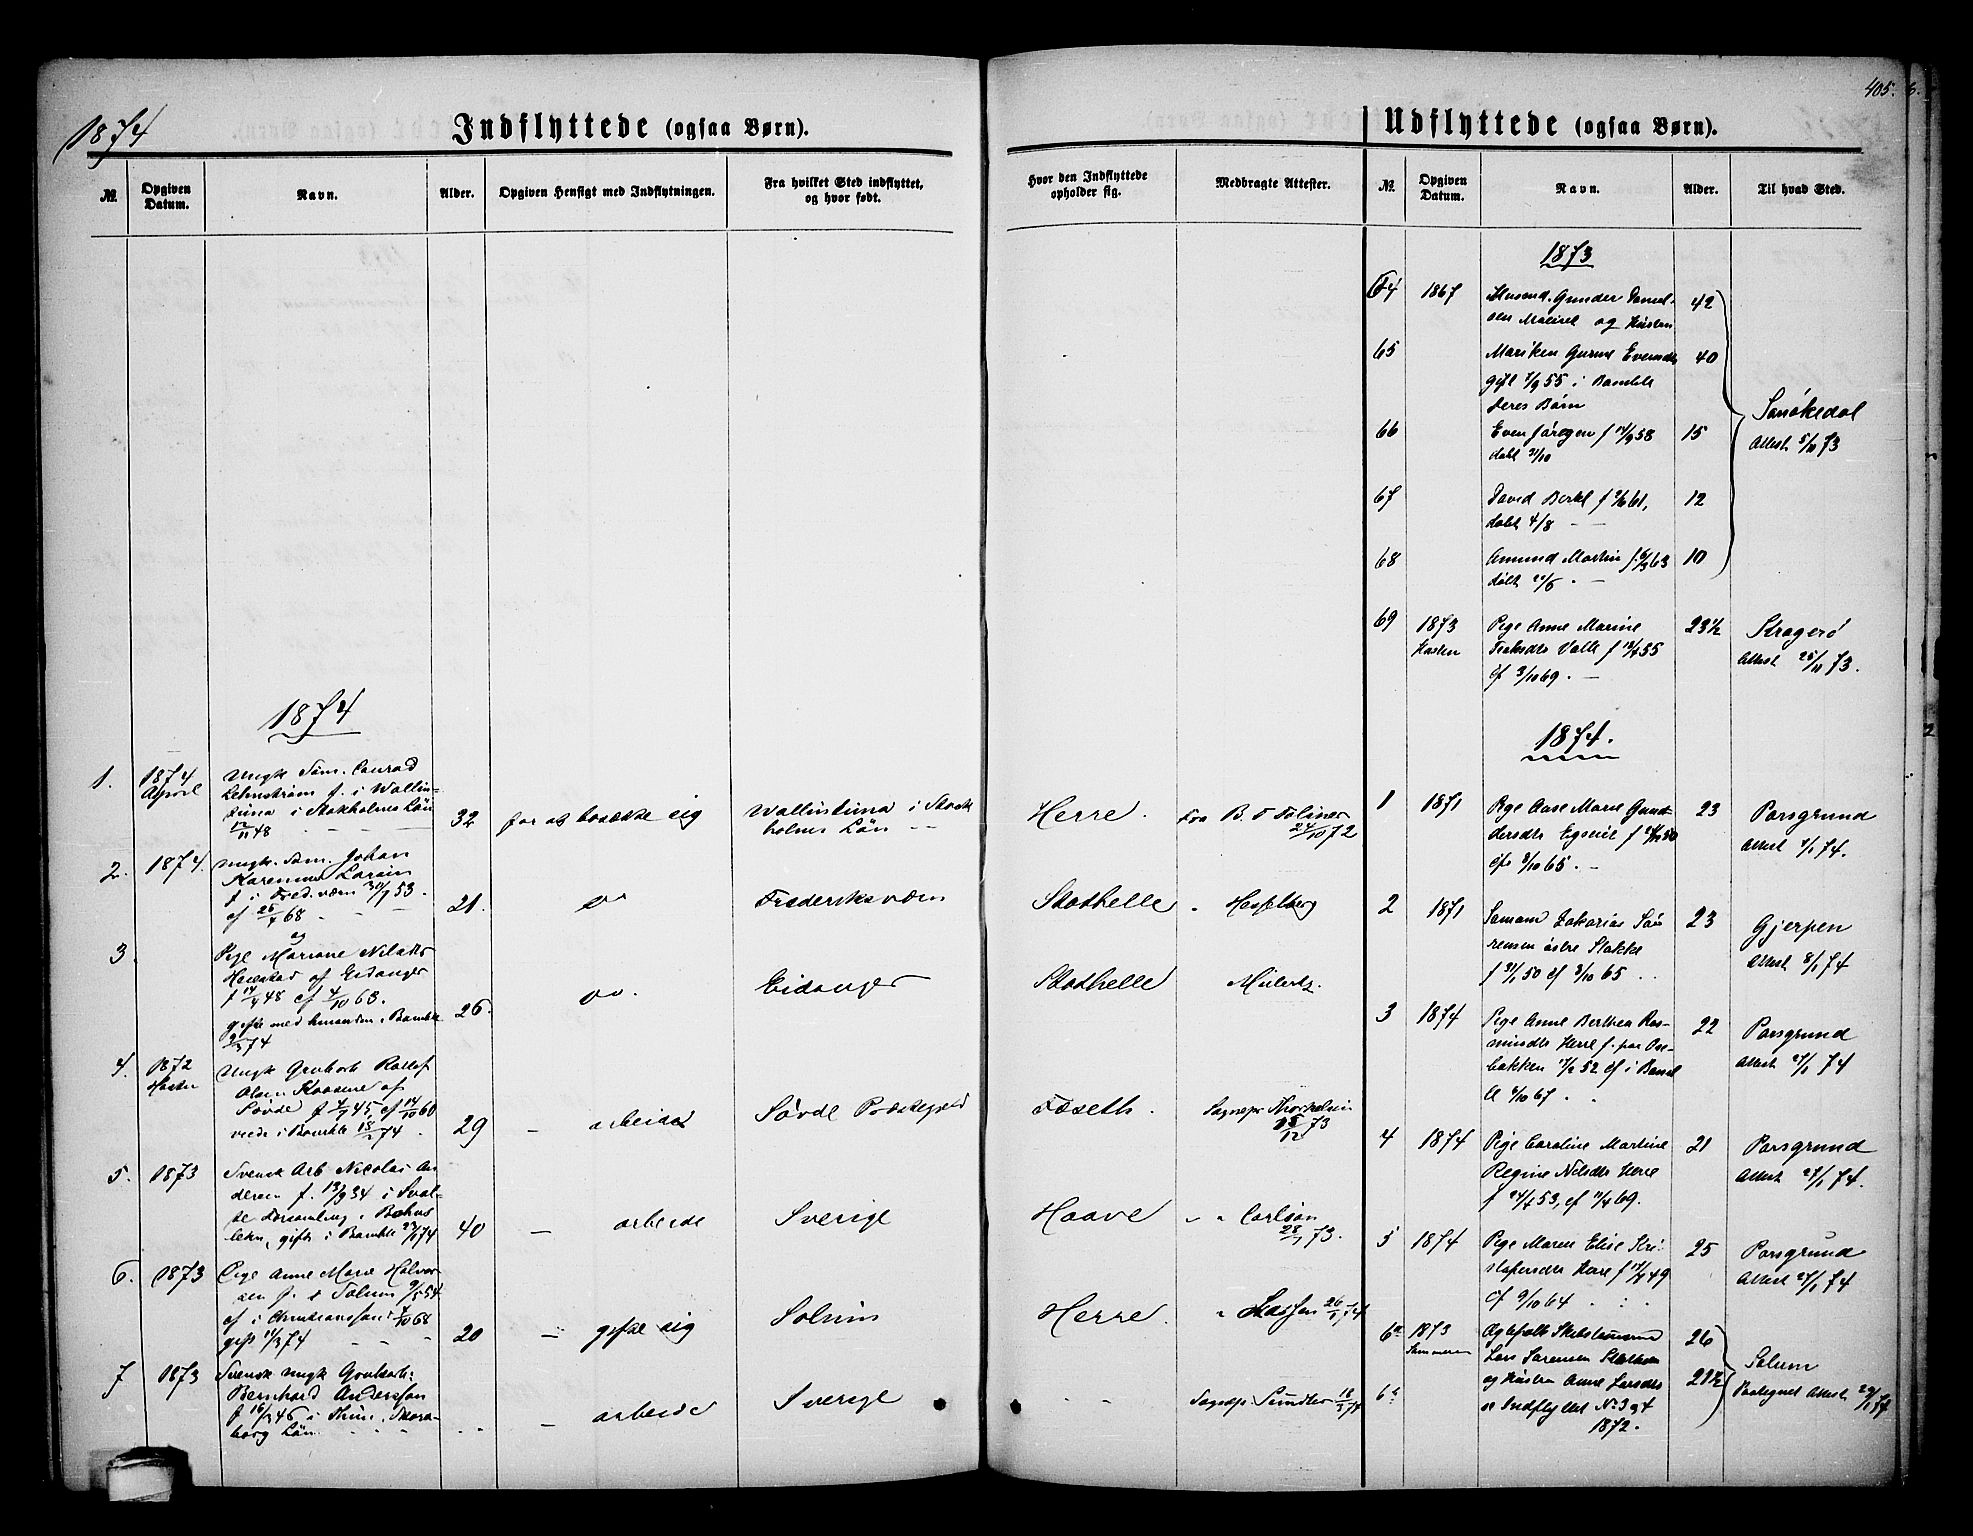 1874
Indflyttede (ogsaa Børn).
№
Opgiven Datum.
Navn.
Alder.
Opgiven Hensigt med Indflytningen.
Fra hvilket Sted indflyttet, og hvor født.
Hvor den Indflyttede opholder sig.
Medbragte Attester.
1874
1. 1874 April Ungk Søm. Conrad
f. i Wallin-
tuna i Stokholms Län
12/11 48
32 for at besøkke sig Wallintuna i Stok
holms Län
Herre. Fra B. T.
24/10 72
2. 1874. Ungk. Søm. Johan
f i Fred.værn 30/9 53.
cf 25/4 68
og
21. do Frederiksværn Stathelle Hesselberg
3 Pige Mariane Nilsdtr
af Eidanger
f 14/4 48 cf 4/10 63.
gifte med hinanden i Bamble
21/3 74
26. do. Eidanger Stathelle
4. 1872 Høsten Ungk Grubearb Rollef
Olsen af
Søvde f 4/9 45, cf 14/10 60
viede i Bamble 18/2 74
29 – arbeide Søvde Præstegjeld Fæseth. Sognepr Thorkelsen
15/12 73
5. 1873 Svensk Arb Nicolai An
dersen f. 13/9 34 i
Forsamling i Bohus
lehn, gift i Bamble 23/1 74
40 – arbeide Sverige Haave " " Carlson
28/1 73.
6. 1873 Pige Anne Marie Halvor
sen f. i Solum 9/5 54
cf i 4/10 68
gift 11/3 74
20 – gifte sig Solum Herre. " 26/1 74
7 1873 Svensk Ungk Grubearb:
Bernhard Andersson
f 16/3 46 i
borg Län
– arbeide Sverige Sognepr 18/3 74
405.
Udflyttede (ogsaa Børn).
№
Opgiven Datum.
Navn.
Alder.
Til hvad Sted.
1873
64 1867 Husmd. Gunder Daniel-
sen og Hustru
42
65 Mariken Gurine Evensdtr
gift 7/9 55 i Bamble
40
Deres Børn
66 Even Jørgen f 14/9 58
døbt 31/10
15
Sanøkedal
Attest 5/11 73
67 David Bertel f 9/6 61,
døbt 4/8
12
68 Amund Martin f. 6/3 63
døbt 22/5
10
69 1873 Høsten Pige Anne Marine
Valle f 12/4 55
cf 3/10 69.
23½ Kragerø
Attest 25/11 73.
1874.
1 1871 Pige Aase Marie Gun-
dersdtr Egsvik f
cf 8/10 65.
23 Porsgrund
Attest 7/1 74.
2 1871 Sømand Zakarias Sø
rensen østre Stokke
f 31/1 50 cf 8/10 65
23 Gjerpen
Attest 8/1 74
3 1874 Pige Anne Berthea Ras-
musdtr Herre f. paa Ose-
bakken 17/2 52 cf i Bamb
le 6/10 67.
22 Porsgrund
Attest 27/1 74
4 1874 Pige Caroline Martine
Regine Nilsdtr Herre
f 24/1 53, cf 11/4 69.
21 Porsgrund
Attest 27/1 74.
5 1874 Pige Maren Elise Kri-
stofersdtr Herre f 17/4 49
cf 9/10 64
25 Porsgrund
Attest 27/1 74
6a 1873 Sommeren Ægtefolk Skibstømmermd
Lars Sørensen Stathelle
26
6b og Hustru Anne Larsdtr
21½
se Indflyttet No 3 og 4
1872.
Solum
Attest 29/1 74